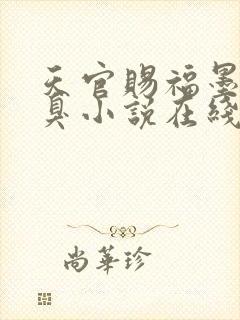 天官赐福墨
臭小说在线
尚華珍